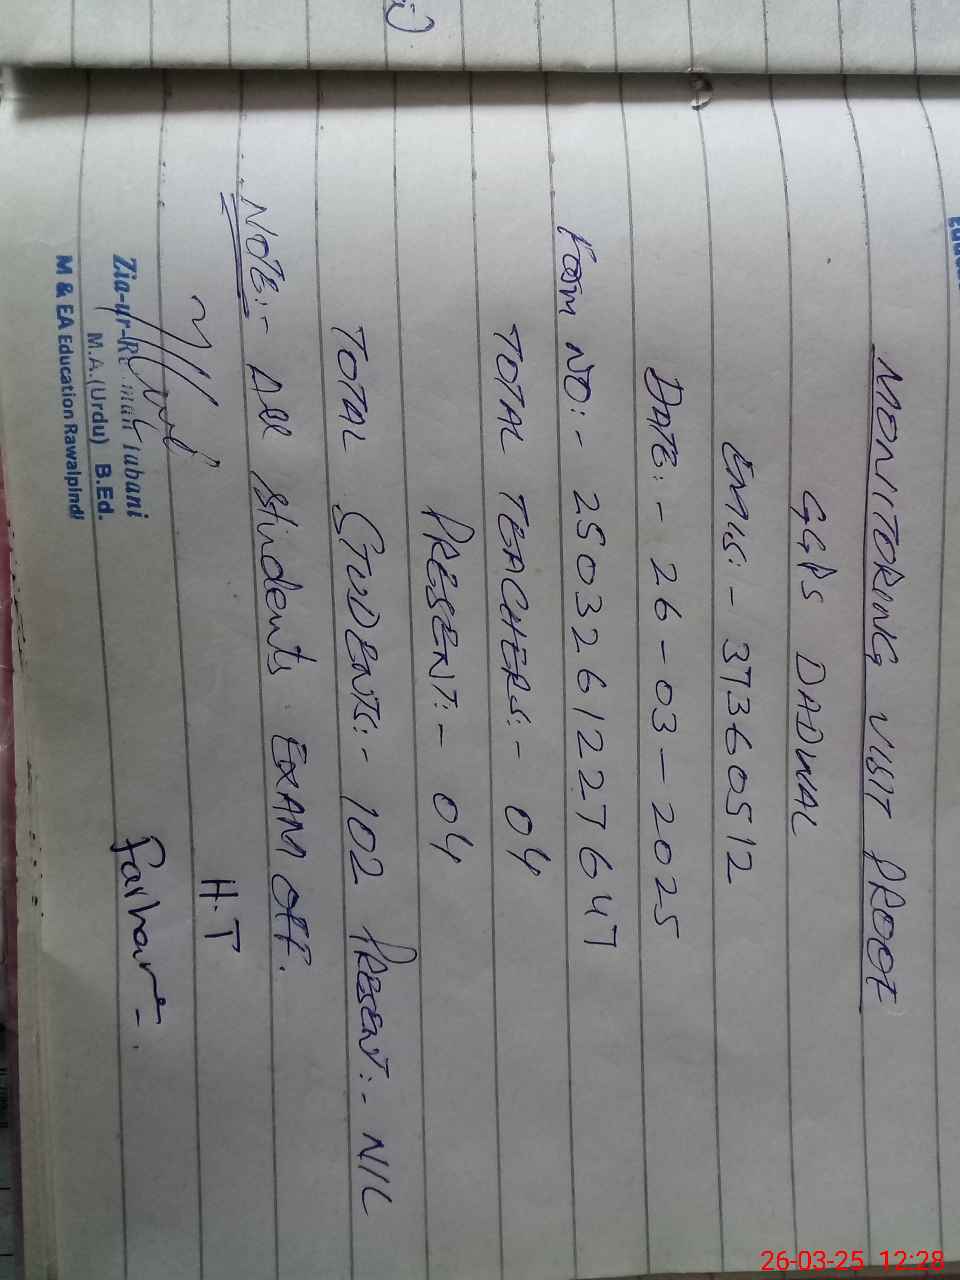 MONITORING VISIT PROOF
GGPS DADWAL
EMIS:- 37360512
DATE:- 26-03-2025
FORM NO:- 2503261227647
TOTAL TEACHERS:- 04
PRESENT:- 04
TOTAL STUDENTS:- 102 PRESENT:- NIL
NOTE:- All students EXAM OFF.
H.T
Farhan
Zia-ur-Rehman Tabani
M.A.(Urdu) B.Ed.
M & EA Education Rawalpindi
26-03-25 12:28